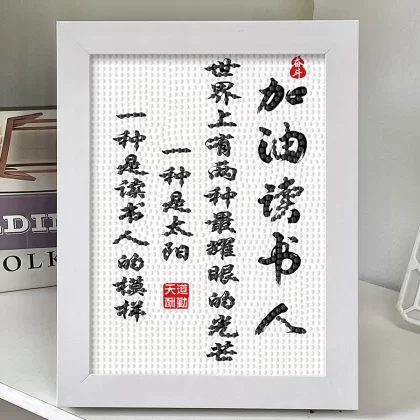 奋斗
加油读书人
世界上有两种最耀眼的光芒
一种是太阳
一种是读书人的模样
天道酬勤